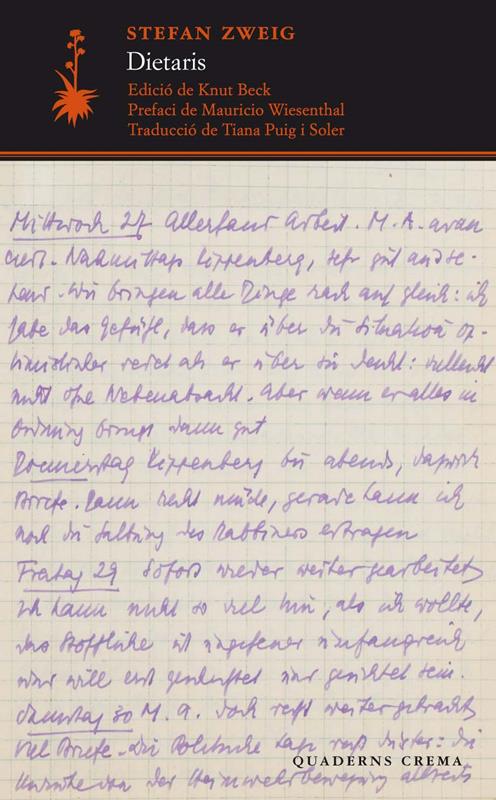 STEFAN ZWEIG
Dietaris
Edició de Knut Beck
Prefaci de Mauricio Wiesenthal
Traducció de Tiana Puig i Soler
Mittwoch 27 Allerhand Arbeit. M. A. avan
ciert. Nachmittags Kippenberg, sehr gut ausse-
hend. Wir bringen alle Dinge rasch auf gleich: ich
habe das Gefühl, dass er über die Situation op-
timistischer redet als er über sie denkt: vielleicht
nicht ohne Nebenabsicht. Aber wenn er alles in
Ordnung bringt dann gut
Donnerstag Kippenberg bis abends, dazwisch
Briefe. Dann recht müde, gerade kann ich
noch die des Rabbiners ertragen
Freitag 29 Sofort wieder weitergearbeitet
Ich kann nicht so viel hin, als ich wollte,
das Stoffliche ist ungeheuer umfangreich
und will erst und gesichtet sein.
Samstag 30 M. A. doch recht weitergebracht
Viel Briefe. Die Politische Lage recht düster: die
von der Heimwehrbewegung allseits
QUADERNS CREMA